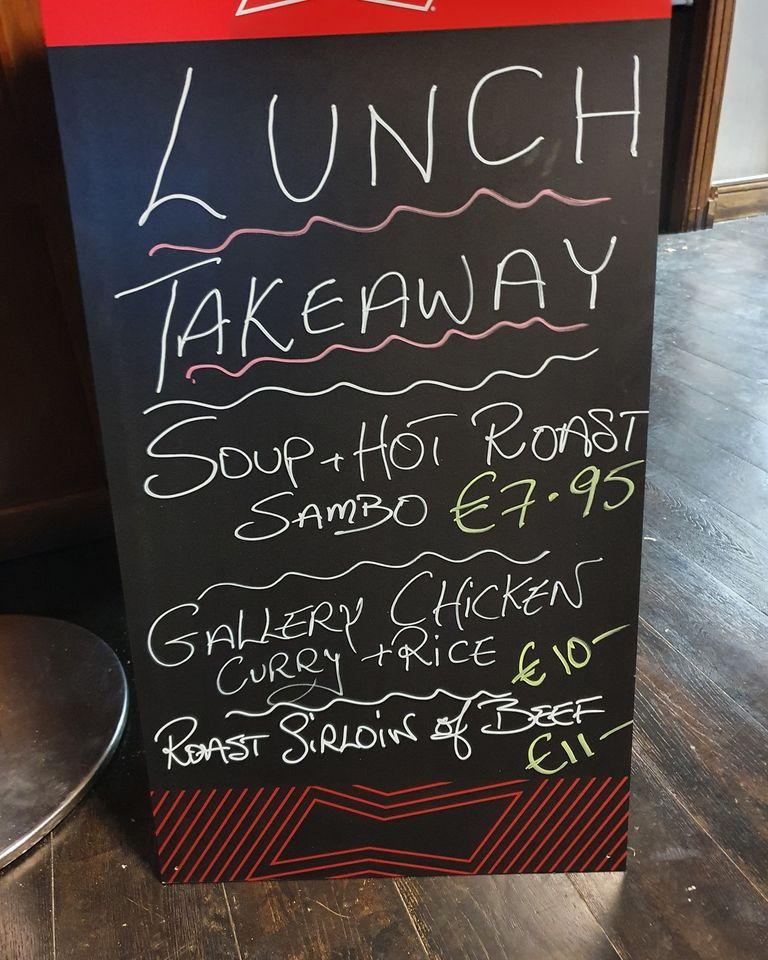 LUNCH
TAKEAWAY
SOUP + HOT ROAST
SAMBO €7.95
GALLERY CHICKEN
CURRY + RICE €10-
ROAST SIRLOIN of BEEF
€11-